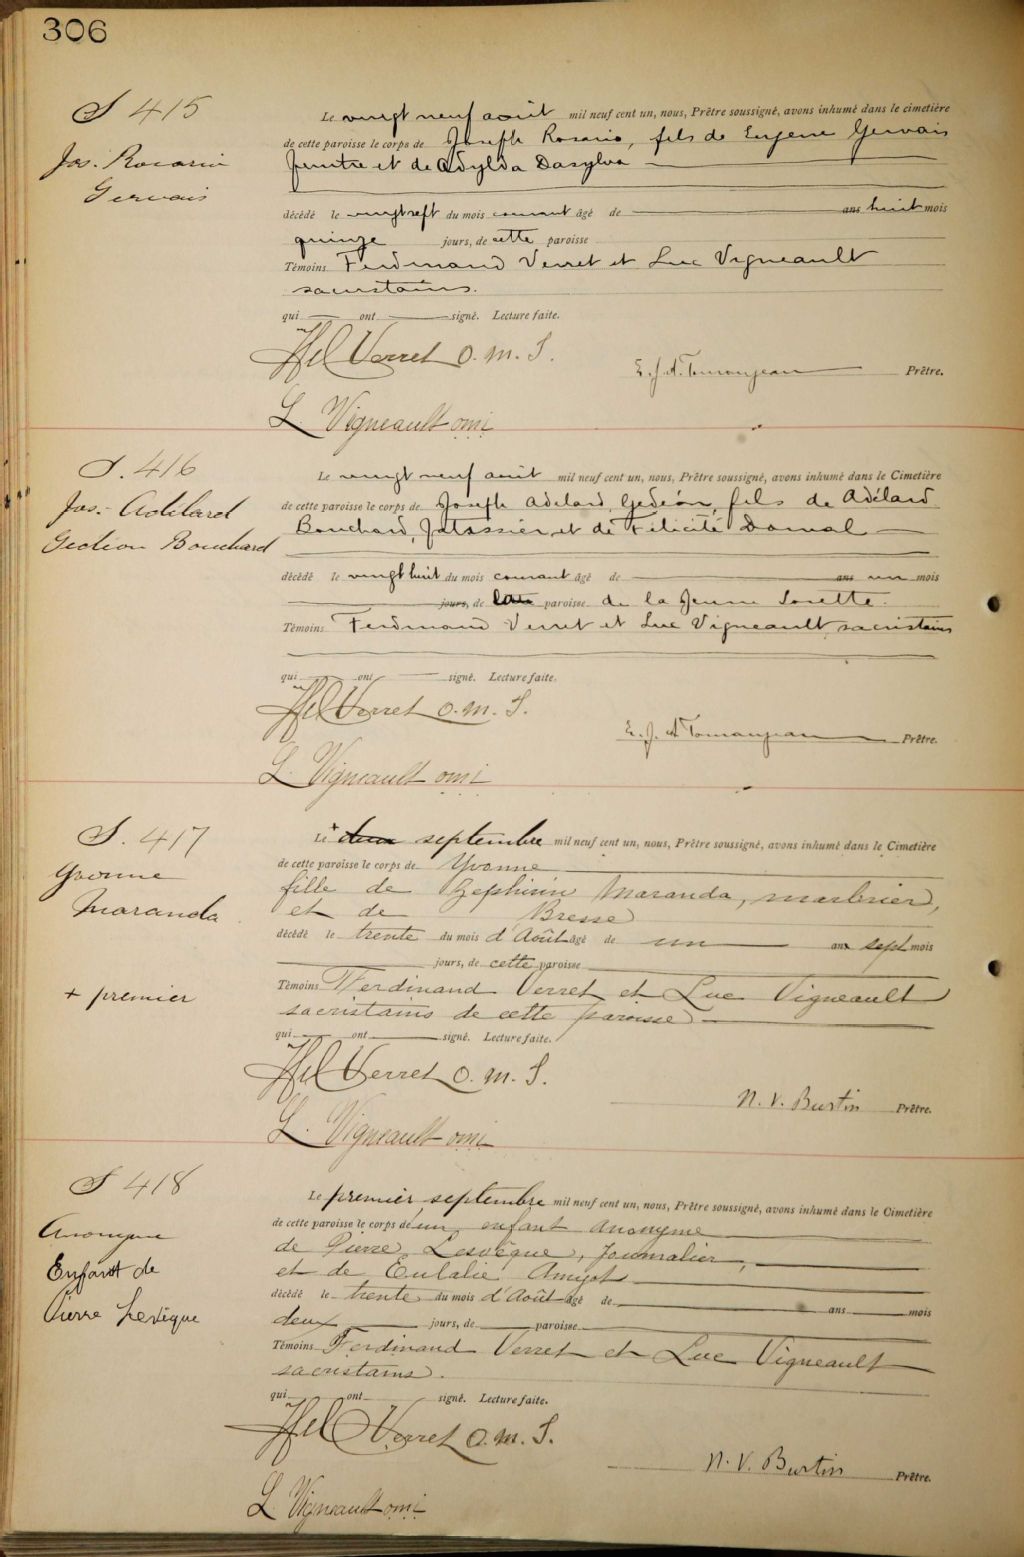 306
S 415
Jos. Rosario
Gervais
Le vingt neuf août mil neuf cent un, nous, Prêtre soussigné, avons inhumé dans le cimetière
de cette paroisse le corps de Joseph Rosario, fils de Eugene Gervais
peintre et de Adylda Dasylva
décédé le vingt sept du mois courant âgé de ans huit mois
quinze jours, de cette paroisse
Témoins Ferdinand Verret et Luc Vigneault
sacristains.
qui ont signé. Lecture faite.
Verret O. M. I.
E. J. A. Tourangeau Prêtre.
L. Vigneault omi
S. 416
Jos. Adélard
Gedéon Bouchard
Le vingt neuf août mil neuf cent un, nous, Prêtre soussigné, avons inhumé dans le Cimetière
de cette paroisse le corps de Joseph Adelard Gedéon, fils de Adélard
Bouchard, et de Félicité
décédé le vingt huit du mois courant âgé de ans un mois
jours, de paroisse de la Jeune Lorette.
Témoins Ferdinand Verret et Luc Vigneault sacristains
qui ont signé. Lecture faite.
Verret O. M. I.
E. J. A. Tourangeau Prêtre.
L. Vigneault omi
S. 417
Yvonne
Maranda
+ premier
Le + deux septembre mil neuf cent un, nous, Prêtre soussigné, avons inhumé dans le Cimetière
de cette paroisse le corps de Yvonne
fille de Zephirin Maranda, marbrier,
et de Bresse
décédé le trente du mois d'Août âgé de un an sept mois
jours, de cette paroisse
Témoins Ferdinand Verret et Luc Vigneault
sacristains de cette paroisse
qui ont signé. Lecture faite.
Verret O. M. I.
N. V. Burtin Prêtre.
L. Vigneault omi
S 418
Anonyme
Enfant de
Pierre Levêque
Le premier septembre mil neuf cent un, nous, Prêtre soussigné, avons inhumé dans le Cimetière
de cette paroisse le corps d'un enfant anonyme
de Pierre Lesvêque, Journalier,
et de Eulalie Amyot
décédé le trente du mois d'Août âgé de ans mois
deux jours, de paroisse
Témoins Ferdinand Verret et Luc Vigneault
sacristains.
qui ont signé. Lecture faite.
Verret O. M. I.
N. V. Burtin Prêtre.
L. Vigneault omi